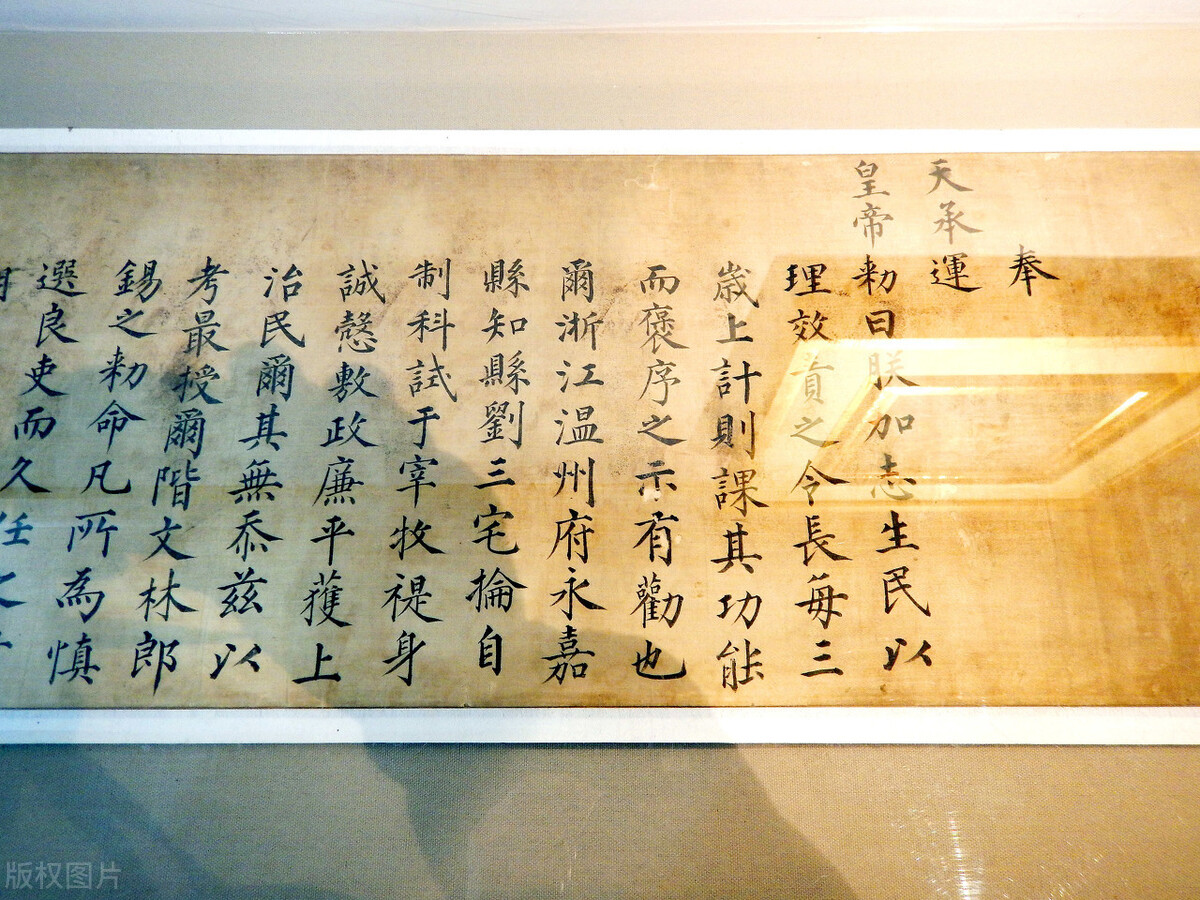 奉
天承運
皇帝勑曰朕加志生民以
理效責之令長每三
歳上計則課其功能
而褒序之示有勸也
爾浙江温州府永嘉
縣知縣劉三宅掄自
制科試于宰牧禔身
誠慤敷政廉平獲上
治民爾其無忝兹以
考最授爾階文林郎
錫之勑命凡所為慎
選良吏而久任
版权图片